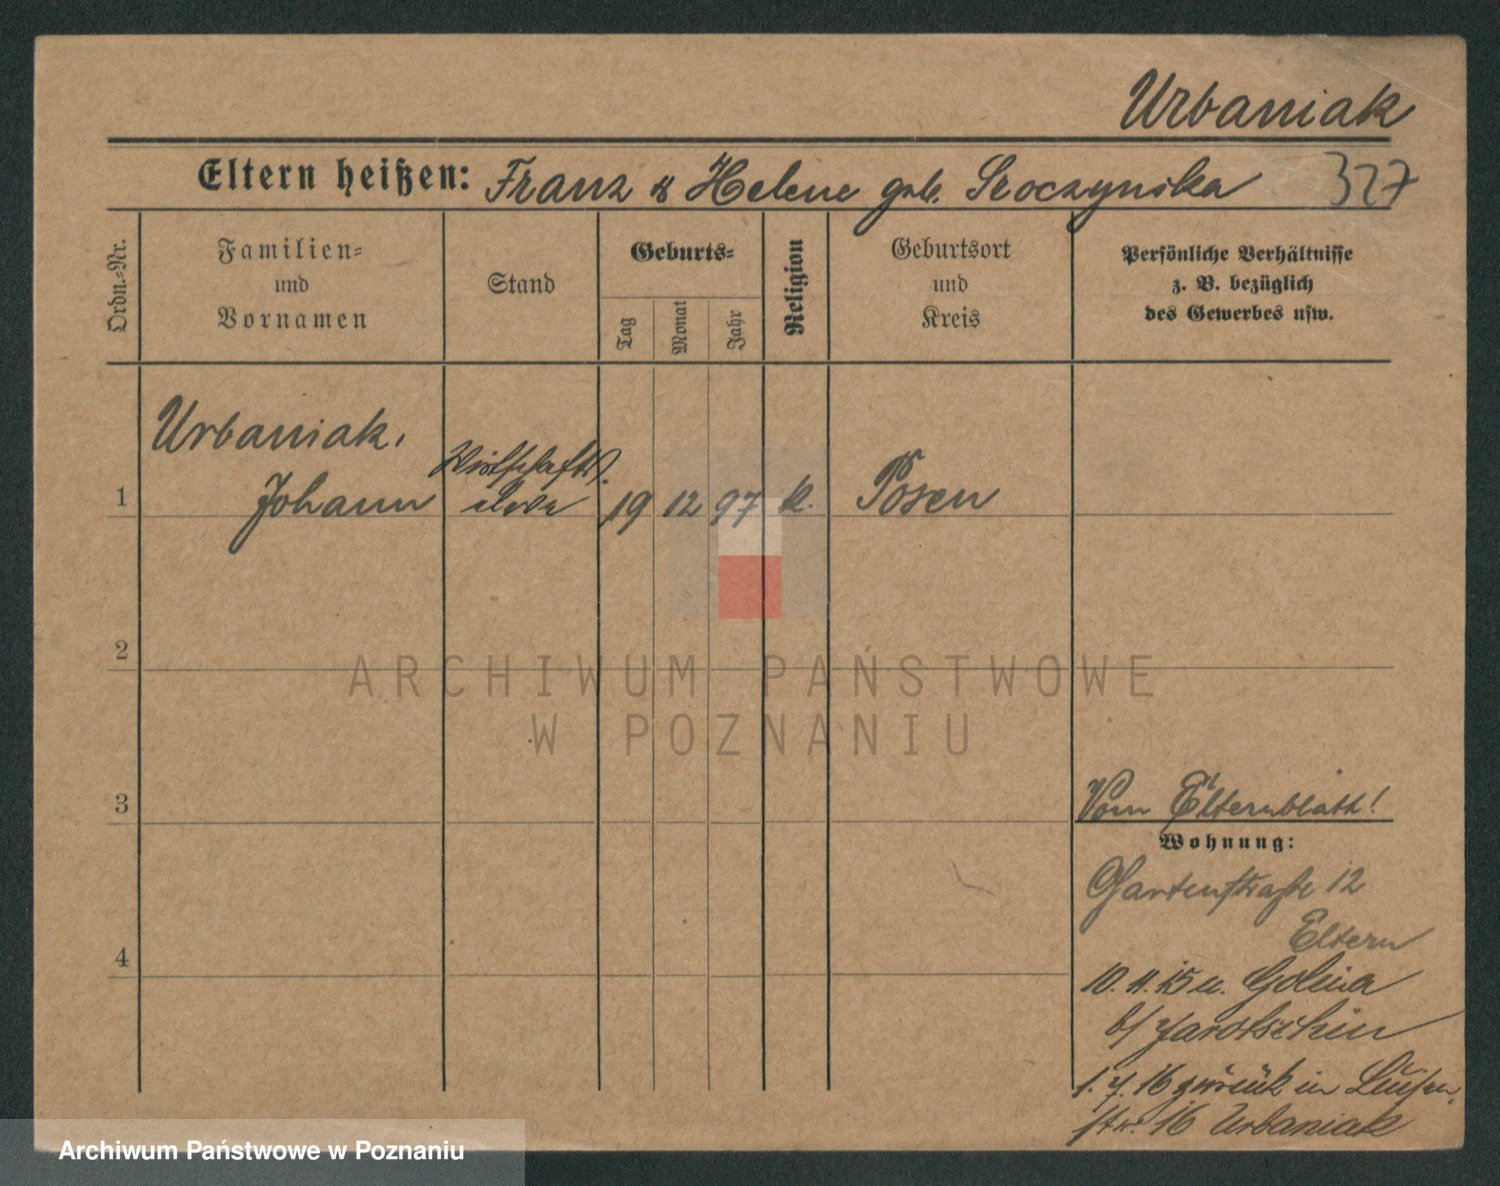 Urbaniak
Eltern heißen: Franz & Helene geb. Sroczynska 327
Ordn.-Nr.
Familien-
und
Vornamen
Stand
Geburts-
Tag
Monat
Jahr
Religion
Geburtsort
und
Kreis
Persönliche Verhältnisse
z. B. bezüglich
des Gewerbes usw.
Urbaniak,
1 Johann Wirtschafts. 19 12 97 k. Posen
2
ARCHIWUM PAŃSTWOWE
W POZNANIU
3
Vom Elternblatt!
Wohnung:
Gartenstraße 12
Eltern
4
10. 11. 15 n. Golina
b/ Jarotschin
1. 7. 16 zurück in Luisen
str. 16 Urbaniak
Archiwum Państwowe w Poznaniu